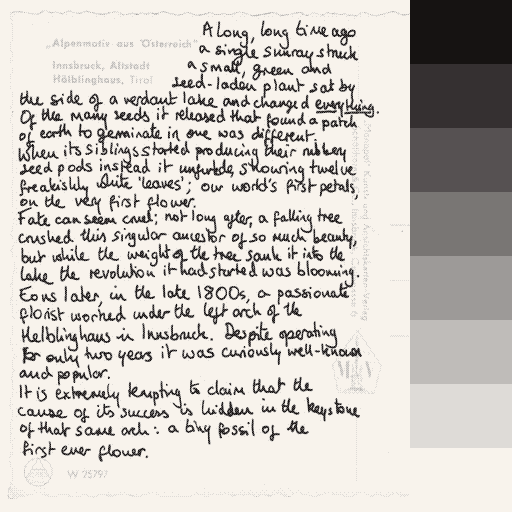 A long, long time ago
„Alpenmotiv aus Österreich"
a single sunray struck
a small, green and
Innsbruck, Altstadt
Hölblinghaus, Tirol
seed-laden plant sat by
the side of a verdant lake and changed everything.
Of the many seeds it released that found a patch
of earth to germinate in one was different.
When its siblings started producing their rubbery
seed pods instead it unfurled, showing twelve
freakishly white 'leaves'; our world's first petals,
on the very first flower.
Fate can seem cruel; not long after, a falling tree
crushed this singular ancestor of so much beauty,
but while the weight of the tree sank it into the
lake the revolution it had started was blooming.
Eons later, in the late 1800s, a passionate
florist worked under the left arch of the
Helblinghaus in Innsbruck. Despite operating
for only two years it was curiously well-known
and popular.
It is extremely tempting to claim that the
cause of its success is hidden in the keystone
of that same arch: a tiny fossil of the
first ever flower.
W 25797